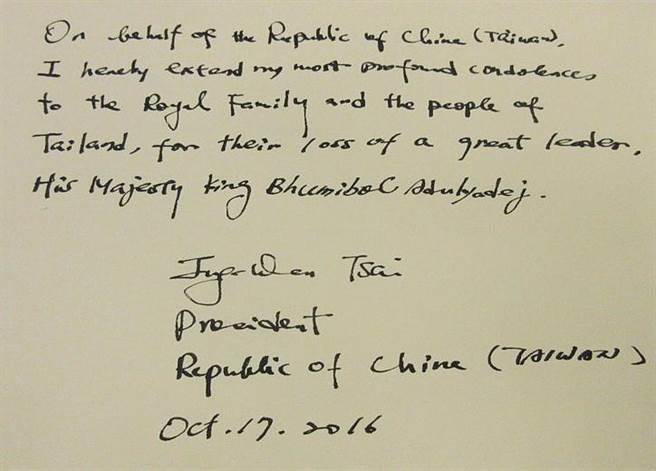 On behalf of the Republic of China (Taiwan),
I hereby extend my most profound condolences
to the Royal Family and the people of
Tailand, for their loss of a great leader,
His Majesty King Bhumibol Adulyadej.
Ing-Wen Tsai
President
Republic of China (TAIWAN)
Oct. 17. 2016